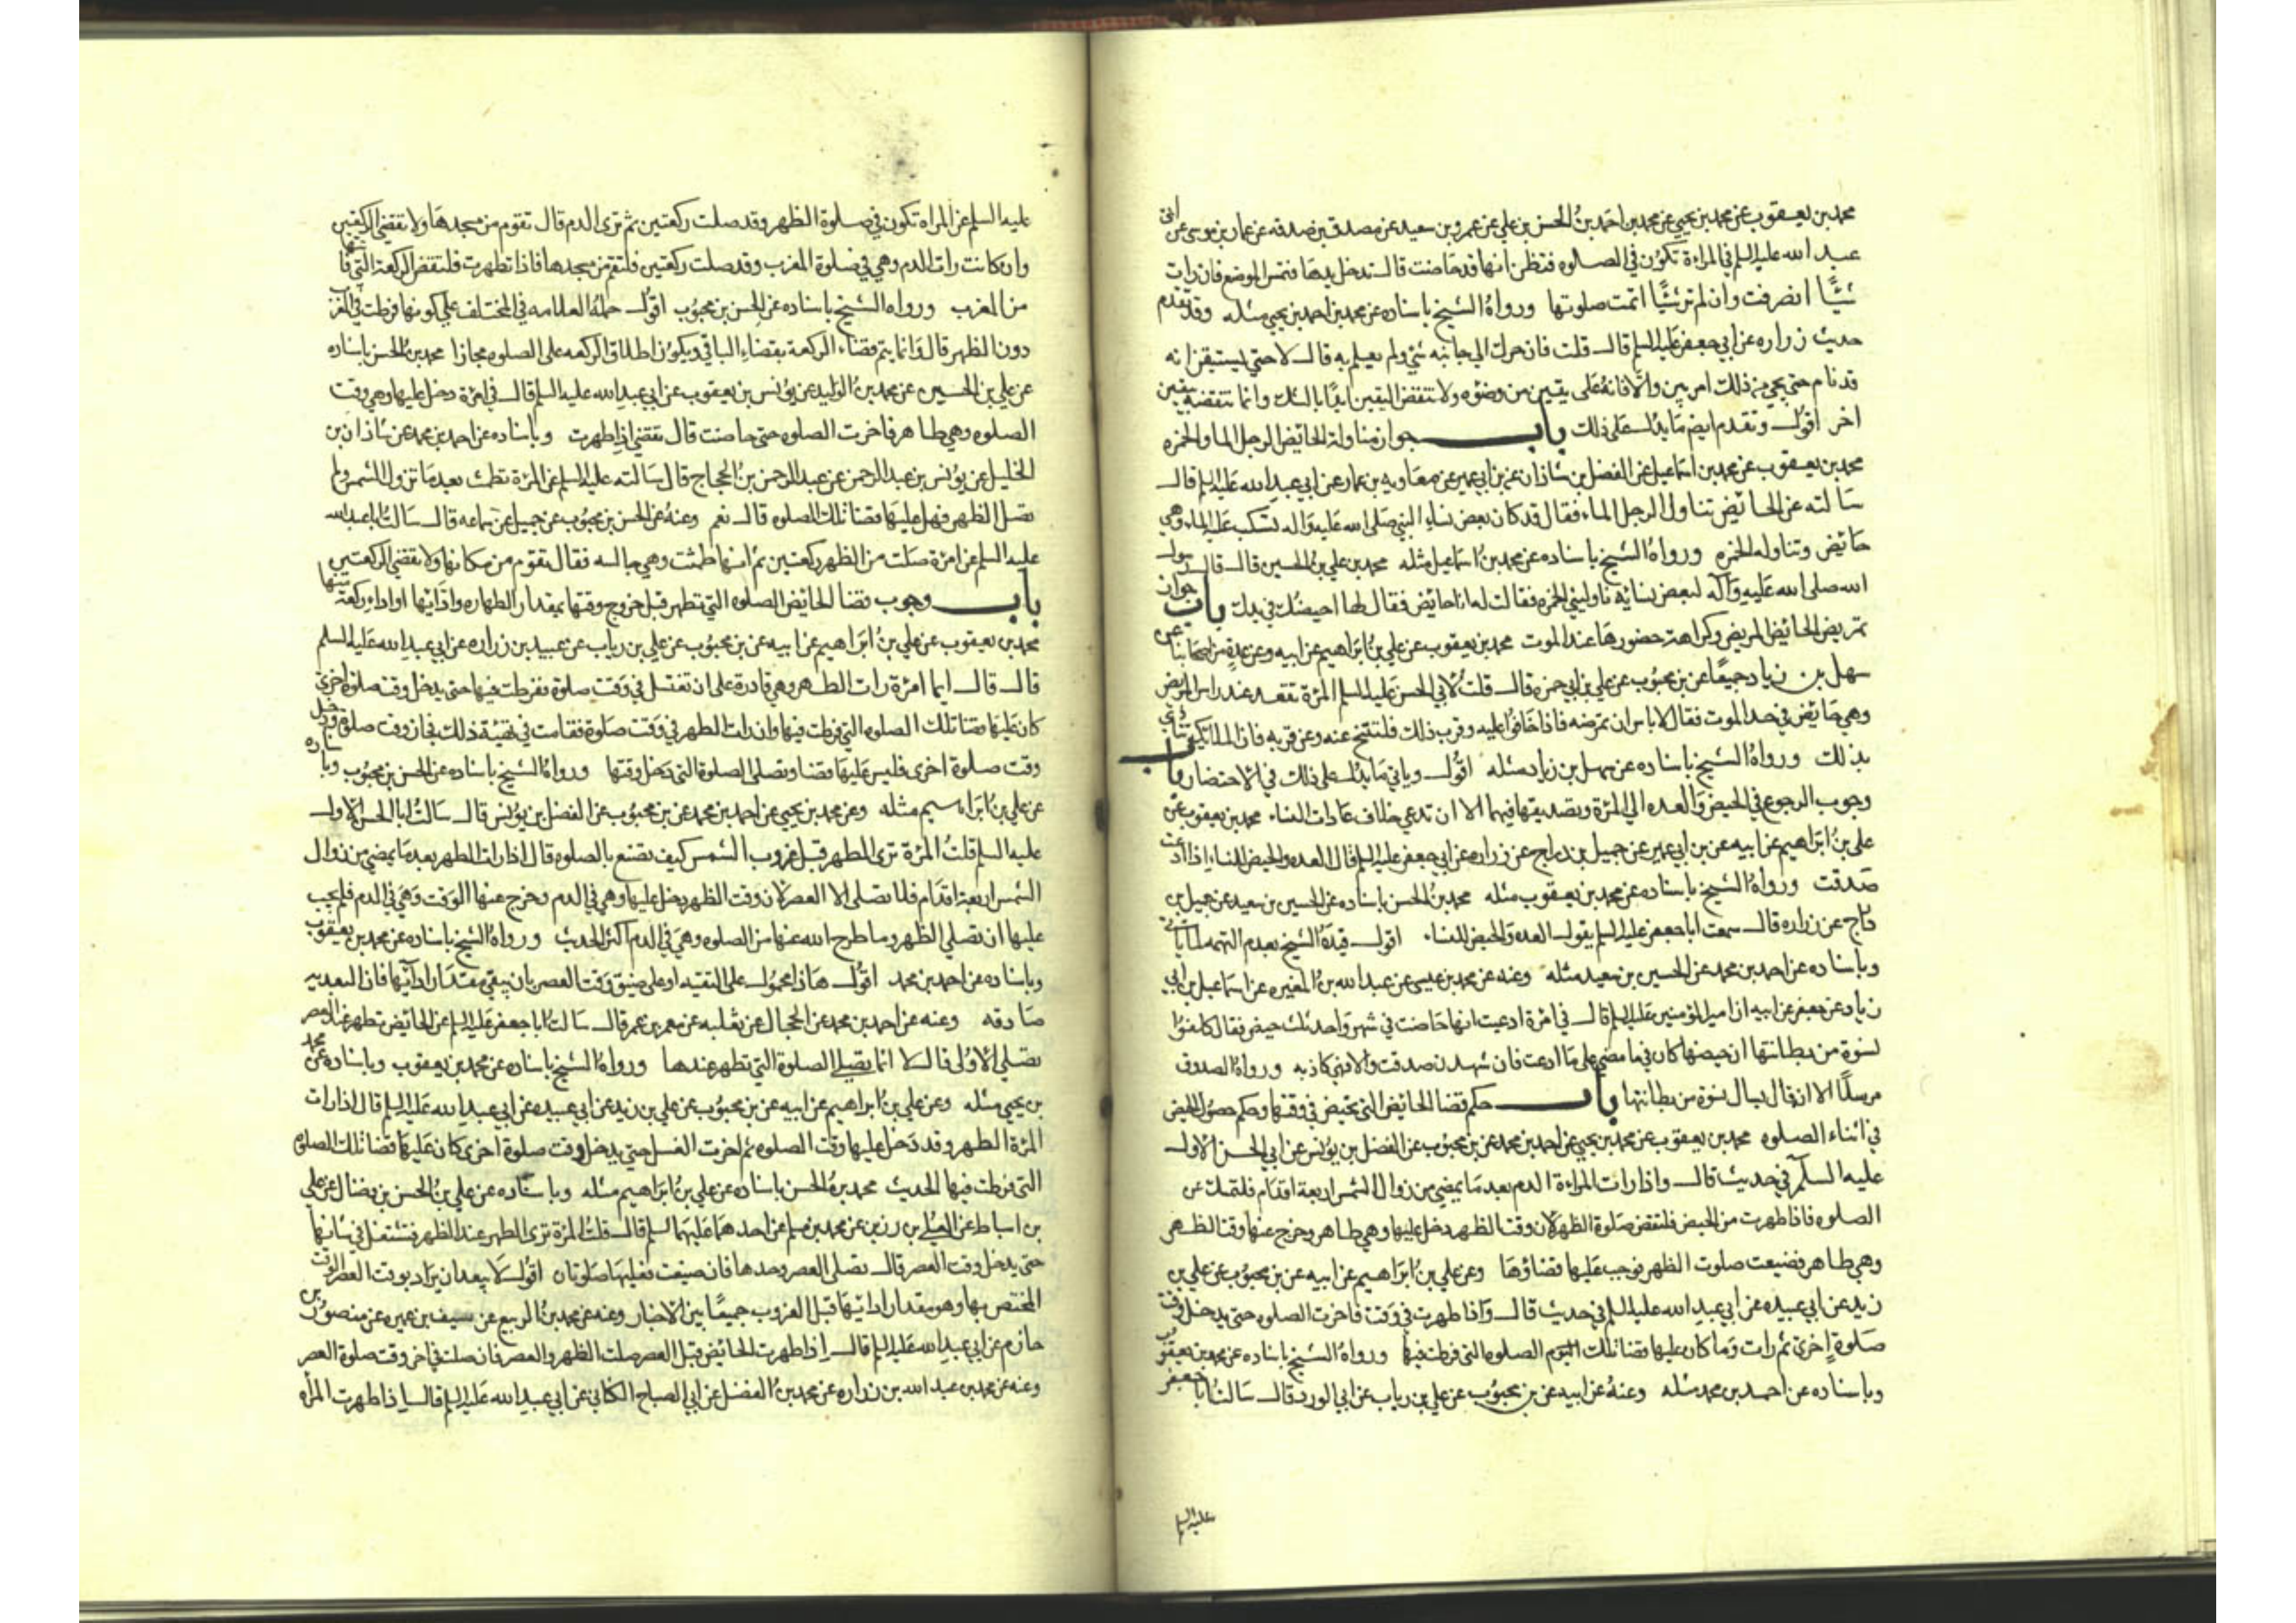 محمد بن يعقوب عن محمد بن يحيي عن محمد بن احمد بن الحسن بن علي عن عمرو بن سعيد عن مصدق بن صدقه عن عمار بن موسى عن ابى
عبد الله عليه السلم في المراءة تكون في الصلوه فتظن انها قد حاضت قال تدخل يدها فتمس الموضع فان رات
شيًا انصرفت وان لم تر شيًا اتمت صلوتها ورواهُ الشيخ باسناده عن محمد بن احمد بن يحيي مثله وقد تقدم
حديث زراره عن ابي جعفر عليه السلم قال قلت فان حرك الي جانبه شئ ولم يعلم به قال لا حتي يستيقن انه
قد نام حتي يجي من ذلك امر بين والا فانه على يقين من وضوه ولا تنقض اليقين ابدًا بالشك وانما تنقضه بيقين
اخر اقول وتقدم ايضم ما يدل على ذلك باب جواز مناولة الحائض الرجل الما والخمره
محمد بن يعقوب عن محمد بن اسماعيل عن الفضل بن شاذان عن بن ابي عمير عن معاويه بن عمار عن ابي عبد الله عليه السلم قال
سالته عن الحائض تناول الرجل الماء فقال قد كان بعض نساء النبي صلى الله عليه واله تسكب عليه الماء وهي
حائض وتناوله الخمره ورواهُ الشيخ باسناده عن محمد بن اسماعيل مثله محمد بن علي بن الحسين قال قال رسول
الله صلى الله عليه وآله لبعض نسائه ناوليني الخمره فقالت له انا حائض فقال لها احيضك في يدك باب جواز
تمريض الحائض المريض وكراهة حضورها عند الموت محمد بن يعقوب عن علي بن ابراهيم عن ابيه وعن عدة من اصحابنا عن
سهل بن زياد جميعًا عن بن محبوب عن علي بن ابي حمزه قال قلت لابي الحسن عليه السلم المرة تقعد عند راس المريض
وهي حائض في حد الموت فقال لا باس ان تمرضه فاذا خافوا عليه وقرب ذلك فلتنتح عنه وعن قربه فان الملائكة تتأذي
بذلك ورواهُ الشيخ باسناده عن سهل بن زياد مثله اقول وياتي ما يدل على ذلك في الاحتضار باب
وجوب الرجوع في الحيض والعده الي المرة وتصديقها فيهما الا ان تدعي خلاف عادات النساء محمد بن يعقوب عن
علي بن ابراهيم عن ابيه عن بن ابي عمير عن جميل بن دراج عن زراره عن ابي جعفر عليه السلم قال العده والحيض للنساء اذا ادعت
صدقت ورواهُ الشيخ باسناده عن محمد بن يعقوب مثله محمد بن الحسن باسناده عن الحسين بن سعيد عن جميل بن
دراج عن زراره قال سمعت ابا جعفر عليه السلم يقول العده والحيض للنساء اقول قيده الشيخ بعدم التهمه لما ياتي
وباسناده عن احمد بن محمد عن الحسين بن سعيد مثله وعنه عن محمد بن عيسى عن عبد الله بن المغيره عن اسماعيل بن ابي
زياد عن جعفر عن ابيه ان امير المؤمنين عليه السلم قال في امرة ادعت انها حاضت في شهر واحد ثلث حيض فقال كلفوا
نسوة من بطانتها ان حيضها كان فيما مضي على ما ادعت فان شهدن صدقت والا فهي كاذبه ورواهُ الصدوق
مرسلًا الا انه قال يسال نسوة من بطانتها باب حكم قضا الحائض التي تحيض في وقتها وحكم حصول الحيض
في اثناء الصلوه محمد بن يعقوب عن محمد بن يحيي عن احمد بن محمد عن بن محبوب عن الفضل بن يونس عن ابي الحسن الاول
عليه السلم في حديث قال واذا رات المراءة الدم بعد ما يمضي من زوال الشمس اربعة اقدام فلتمسك عن
الصلوه فاذا طهرت من الحيض فلتقض صلوة الظهر لان وقت الظهر دخل عليها وهي طاهر وخرج عنها وقت الظهر
وهي طاهر فضيعت صلوت الظهر فوجب عليها قضاؤها وعن علي بن ابراهيم عن ابيه عن بن محبوب عن علي بن
زيد عن ابي عبيده عن ابي عبد الله عليه السلم في حديث قال واذا طهرت في وقت فاخرت الصلوه حتي يدخل وقت
صلوة اخرى ثم رات دما كان عليها قضا تلك الصلوه التي فرطت فيها ورواهُ الشيخ باسناده عن محمد بن يعقوب
وباسناده عن احمد بن محمد مثله وعنهُ عن ابيه عن بن محبوب عن علي بن رياب عن ابي الورد قال سالت ابا جعفر
عليه السلم
عليه السلم عن المراه تكون في صلوة الظهر وقد صلت ركعتين ثم ترى الدم قال تقوم من مسجدها ولا تقضي الركعتين
وان كانت رات الدم وهي في صلوة المغرب وقد صلت ركعتين فلتقم من مسجدها فاذا تطهرت فلتقض الركعة التي فاتتها
من المغرب ورواه الشيخ باسناده عن الحسن بن محبوب اقول حمله العلامه في المختلف علي كونها فرطت في المغرب
دون الظهر قال وانما يتم قضاء الركعة بقضاء الباقي ويكون اطلاق الركعه على الصلوه مجازا محمد بن الحسن باسناده
عن علي بن الحسين عن محمد بن الوليد عن يونس بن يعقوب عن ابي عبد الله عليه السلم قال في امرة دخل عليها وهي وقت
الصلوه وهي طاهر فاخرت الصلوه حتي حاضت قال تقضي اذا طهرت وباسناده عن احمد بن محمد عن شاذان بن
الخليل عن يونس بن عبد الرحمن عن عبد الرحمن بن الحجاج قال سالته عليه السلم عن المرة تطمث بعد ما تزول الشمس ولم
تصل الظهر فهل عليها قضا تلك الصلوه قال نعم وعنهُ عن الحسن بن محبوب عن جميل عن سماعه قال سالت ابا عبد الله
عليه السلم عن امرة صلت من الظهر ركعتين ثم انها طمثت وهي جالسه فقال تقوم من مكانها ولا تقضي الركعتين
باب وجوب قضا الحائض الصلوه التي تطهر قبل خروج وقتها بمقدار الطهاره وادائها او اداء ركعة منها
محمد بن يعقوب عن علي بن ابراهيم عن ابيه عن بن محبوب عن علي بن رياب عن عبيد بن زراره عن ابي عبد الله عليه السلم
قال قال ايما امرة رات الطهر وهي قادرة على ان تغتسل في وقت صلوة ففرطت فيها حتى يدخل وقت صلوة اخرى
كان عليها قضا تلك الصلوه التي فرطت فيها وان رات الطهر في وقت صلوة فقامت في تهيئة ذلك فجاز وقت صلوة ودخل
وقت صلوة اخرى فليس عليها قضا وتصلي الصلوة التي دخل وقتها ورواهُ الشيخ باسناده عن الحسن بن محبوب وباسناده
عن علي بن ابراهيم مثله وعن محمد بن يحيي عن احمد بن محمد عن بن محبوب عن الفضل بن يونس قال سالت ابا الحسن الاول
عليه السلم قلت المرة ترى الطهر قبل غروب الشمس كيف تصنع بالصلوه قال اذا رات الطهر بعد ما يمضي من زوال
الشمس اربعة اقدام فلا تصلي الا العصر لان وقت الظهر دخل عليها وهي في الدم وخرج عنها الوقت وهي في الدم فلم يجب
عليها ان تصلي الظهر وما طرح الله عنها من الصلوه وهي في الدم اكثر الحديث ورواهُ الشيخ باسناده عن محمد بن يعقوب
وباسناده عن احمد بن محمد اقول هذا محمول على التقيه او على ضيق وقت العصر بان يبقي مقدار ادائها فان البعديه
صادقه وعنه عن احمد بن محمد عن الحجال عن ثعلبه عن معمر بن عمر قال سالت ابا جعفر عليه السلم عن الحائض تطهر عند العصر
تصلي الاولى قال لا انما تصلي الصلوة التي تطهر عندها ورواهُ الشيخ باسناده عن محمد بن يعقوب وباسناده عن محمد
بن يحيي مثله وعن علي بن ابراهيم عن ابيه عن بن محبوب عن علي بن زيد عن ابي عبيده عن ابي عبد الله عليه السلم قال اذا رات
المرة الطهر وقد دخل عليها وقت الصلوه ثم اخرت الغسل حتي يدخل وقت صلوة اخرى كان عليها قضا تلك الصلوه
التي فرطت فيها الحديث محمد بن الحسن باسناده عن علي بن ابراهيم مثله وباسناده عن علي بن الحسن بن فضال عن علي
بن اسباط عن العلا بن رزين عن محمد بن مسلم عن احدهما عليهما السلم قال قلت المرة ترى الطهر عند الظهر فتشتغل في شانها
حتى يدخل وقت العصر قال تصلي العصر وحدها فان ضيعت فعليها صلوتان اقول لا يبعد ان يراد بوقت العصر الوقت
المختص بها وهو مقدار ادائها قبل الغروب جميعًا بين الاخبار وعنه عن محمد بن الربيع عن سيف بن عميره عن منصور بن
حازم عن ابي عبد الله عليه السلم قال اذا طهرت الحائض قبل العصر صلت الظهر والعصر فان صلت في اخر وقت صلوة العصر
وعنه عن محمد بن عبد الله بن زراره عن محمد بن الفضل عن ابي الصباح الكناني عن ابي عبد الله عليه السلم قال اذا طهرت المراه